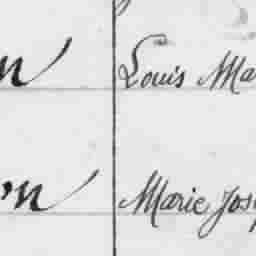 Louis Ma
Marie Jos